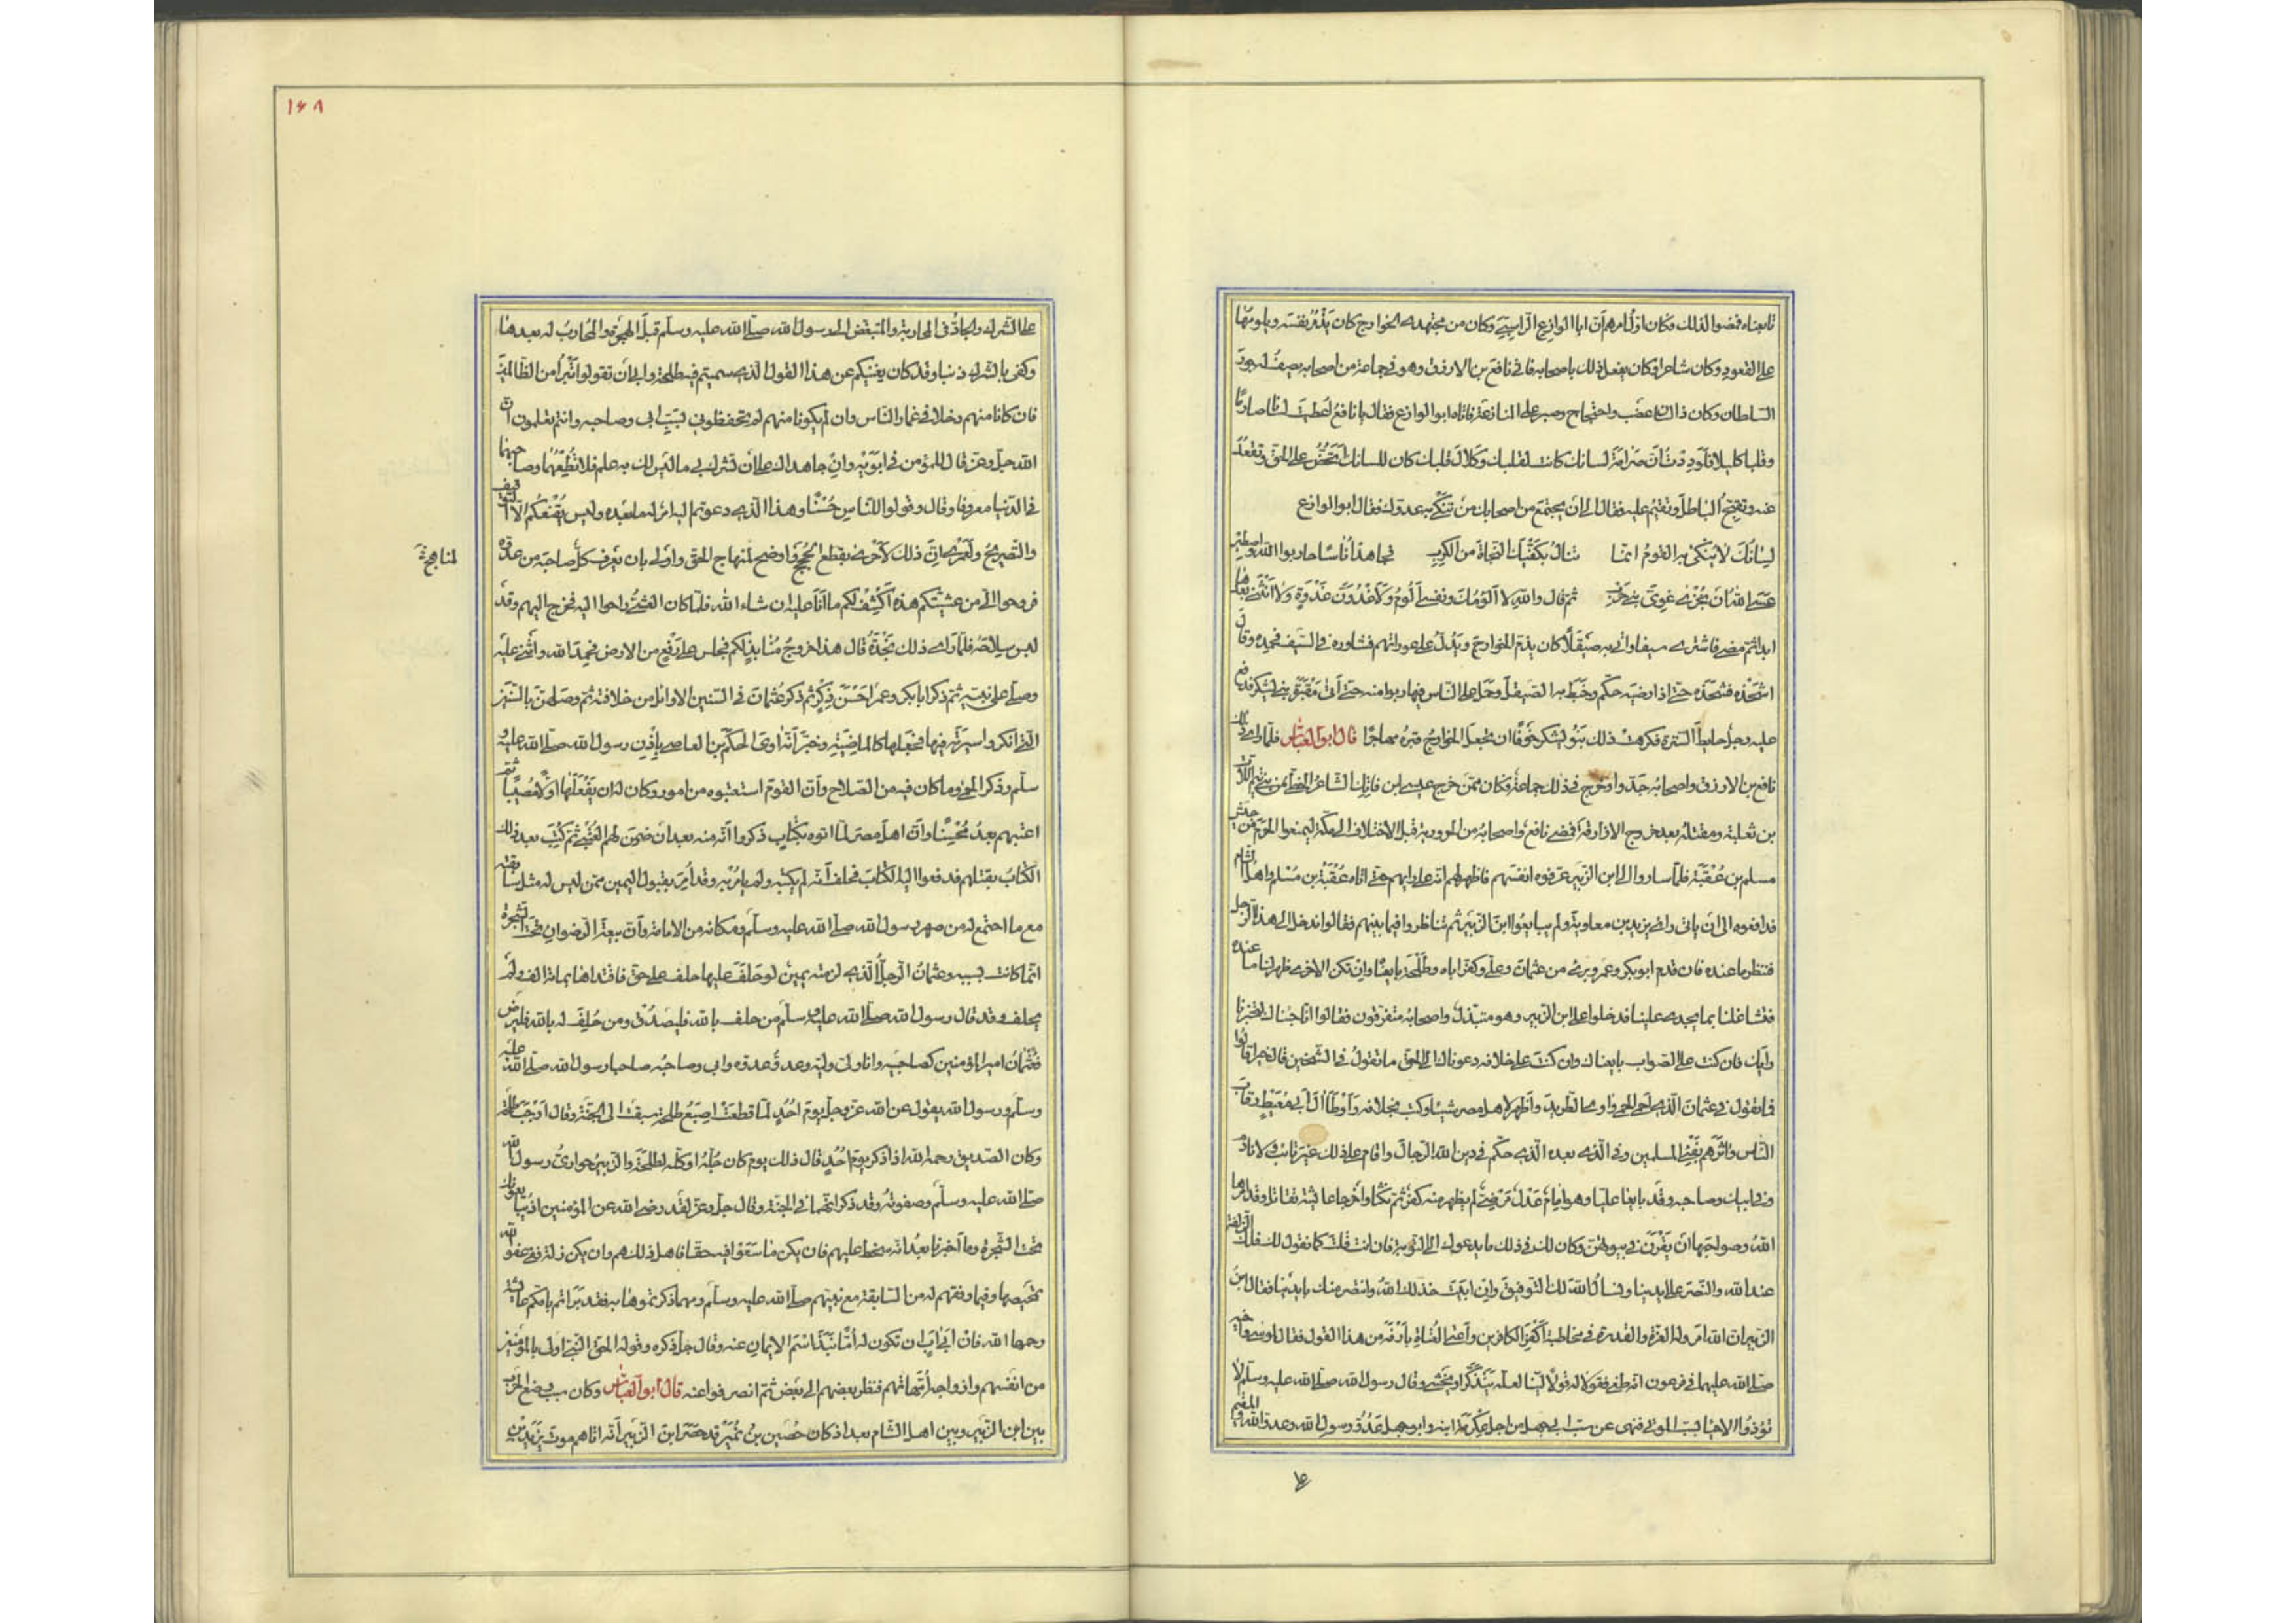 تابعناه فمضوا لذلك وكان اول امرهم ان ابا الوازع الراسبي وكان من مجتهدي الخوارج كان يذمر نفسه ويلومها
على القعود وكان شاعرا وكان يفعل ذلك باصحابه فاتى نافع بن الازرق وهو في جماعة من اصحابه يصف لهم جور
السلطان وكان ذا لسان عضب واحتجاج وصبر على المنازعة فاتاه ابو الوازع فقال يا نافع لقد اعطيت لسانا صارما
وقلبا كليلا فلوددت ان صرامة لسانك كانت لقلبك وكلال قلبك كان للسانك اتحض على الحق وتقعد
عنه وتقبح الباطل وتقيم عليه فقال الى ان يجتمع من اصحابك من تنكي به عدوك فقال ابو الوازع
لسانك لا ينكى به القوم انما تنال بكفيك النجاة من الكرب فجاهد اناسا حاربوا الله واصطبر
عسى الله ان يخزي غوي بني حرب ثم قال والله لا الومك ونفسي الوم ولاغدون غدوة لا انثني بعدها
ابدا ثم مضى فاشترى سيفا واتى به صيقلا كان يذم الخوارج ويدل على عوراتهم فشاوره في السيف فحمده وقال
اشحذه فشحذه حتى اذا رضيه حكم وخبط به الصيقل وحمل على الناس فهاربوا منه حتى اتى مقبرة بني يشكر فدفع
عليه رجل حايط السترة فكرهت ذلك بنو يشكر خوفا ان يجعل الخوارج قبره مهاجرا قال ابو العباس فلما راى ذلك
نافع بن الازرق واصحابه جدوا وخرج في ذلك جماعة وكان ممن خرج عيسى ابن فاتك الشاعر الخطي من بني تيم اللات
بن ثعلبة ومقتله بعد خروج الازارقة فمضى نافع واصحابه من الحرورية قبل الاختلاف الى مكة ليمنعوا الحرم من جيش
مسلم بن عقبة فلما ساروا الى ابن الزبير عرفوه انفسهم فاظهر لهم انه على رايهم حتى اتاه عقبة بن مسلم واهل الشام
فدافعوه الى ان ياتي راى يزيد بن معاوية ولم يبايعوا ابن الزبير ثم تناظروا فيما بينهم فقالوا ندخل الى هذا الرجل
فننظر ما عنده فان قدم ابو بكر وعمر وبرئ من عثمان وعلي وكفر اباه وطلحة بايعناه وان تكن الاخرى ظهر لنا ما عنده
فتشاغلنا بما يجدي علينا فدخلوا على ابن الزبير وهو متبذل واصحابه متفرقون فقالوا انا جئناك لتخبرنا
رايك فان كنت على الصواب بايعناك وان كنت على خلافه دعوناك الى الحق ما تقول في الشيخين قال خيرا قالوا
فما تقول في عثمان الذي احمى الحمى واوى الطريد واظهر لاهل مصر شيئا وكتب بخلافه واوطا ال ابي معيط رقاب
الناس واثرهم بفيء المسلمين وفي الذي بعده الذي حكم في دين الله الرجال واقام على ذلك غير تائب ولا نادم
وفي ابيك وصاحبه وقد بايعا عليا وهو امام عدل مرضي لم يظهر منه كفر ثم نكثا واخرجا عائشة تقاتل وقد امرها
الله وصواحبها ان يقرن في بيوتهن وكان لك في ذلك ما يدعوك الى التوبة فان انت قلت كما نقول فلك الزلفة
عند الله والنصر على ايدينا ونسال الله لك التوفيق وان ابيت خذلك الله وانتصر منك بايدينا فقال ابن
الزبير ان الله امر وله العزة والقدرة في مخاطبة اكفر الكافرين واعتى العتاة بارق من هذا القول فقال لموسى واخيه
صلى الله عليهما في فرعون انه طغى فقولا له قولا لينا لعله يتذكر او يخشى وقال رسول الله صلى الله عليه وسلم لا
توذوا الاحيا بسب الموتى فنهى عن سب ابي جهل من اجل عكرمة ابنه وابو جهل عدو رسول الله وعدو الله والمقيم
على
١٤٨
على الشرك والجاد في المحاربة والمتبغض الى رسول الله صلى الله عليه وسلم قبل الهجرة والمحارب له بعدها
وكفى بالشرك ذنبا وقد كان يغنيكم عن هذا القول الذي سميتم فيه طلحة وابي ان تقولوا اتبرا من الظالمين
فان كانا منهم دخلا في غمار الناس وان لم يكونا منهم لم تحفظوني بسب ابي وصاحبه وانتم تعلمون ان
الله جل وعز قال للمؤمن في ابويه وان جاهداك على ان تشرك بي ما ليس لك به علم فلا تطعهما وصاحبهما
في الدنيا معروفا وقال وقولوا للناس حسنا وهذا الذي دعوتم اليه امر له ما بعده وليس يقنعكم الا التوقيف
والتصريح ولعمري ان ذلك لاحرى بقطع الحجج واوضح لمنهاج الحق واولى بان يعرف كل صاحبه من عدوه
لمناهجة
فروحوا الي من عشيتكم هذه اكشف لكم ما انا عليه ان شاء الله فلما كان العشي راحوا اليه فخرج اليهم وقد
لبس سلاحه فلما راى ذلك نجدة قال هذا خروج منابذ لكم فجلس على رفع من الارض فحمد الله واثنى عليه
وصلى على نبيه ثم ذكر ابا بكر وعمر احسن ذكر ثم ذكر عثمان في السنين الاوائل من خلافته ثم وصلهن بالسنين
التي انكروا سيرته فيها فجعلها كالماضية وخبر انه اوى الحكم بن العاصي باذن رسول الله صلى الله عليه و
سلم وذكر الحمى وما كان فيه من الصلاح وان القوم استعتبوه من امور وكان له ان يفعلها اولا مصيبا ثم
اعتبهم بعد محسنا وان اهل مصر لما اتوه بكتاب ذكروا انه منه بعد ان ضمن لهم العتبى ثم كتب بعد ذلك
الكتاب بقتلهم فدفعوا اليه الكتاب فحلف انه لم يكتبه ولم يامر به وقد امر بقبول اليمين ممن ليس له مثل سابقته
مع ما اجتمع له من صهر رسول الله صلى الله عليه وسلم ومكانه من الامامة وان بيعة الرضوان تحت الشجرة
انما كانت بسببه وعثمان الرجل الذي لزمته يمين لو حلف عليها حلف على حق فافتداها بمائة الف ولم
يحلف وقد قال رسول الله صلى الله عليه وسلم من حلف بالله فليصدق ومن حلف له بالله فليرض
فعثمان امير المؤمنين كصاحبيه وانا ولي وليه وعدو عدوه وابي وصاحبه صاحبا رسول الله صلى الله عليه
وسلم ورسول الله يقول عن الله عز وجل يوم احد لما قطعت اصبع طلحة سبقت الى الجنة وقال اوجب طلحة
وكان الصديق رحمه الله اذا ذكر يوم احد قال ذلك يوم كان جله او كله لطلحة والزبير حواري رسول الله
صلى الله عليه وسلم وصفوته وقد ذكر انهما في الجنة وقال جل وعز لقد رضي الله عن المؤمنين اذ يبايعونك
تحت الشجرة وما اخبرنا بعد انه سخط عليهم فان يكن ما سعوا فيه حقا فاهل ذلك هم وان يكن زلة ففي عفو الله
تمحيصها وفيما وفقهم له من السابقة مع نبيهم صلى الله عليه وسلم ومهما ذكرتموهما به فقد بداتم بامكم عائشة
رحمها الله فان ابى اب ان تكون له اما نبذ اسم الايمان عنه وقال جل ذكره وقوله الحق النبي اولى بالمؤمنين
من انفسهم وازواجه امهاتهم فنظر بعضهم الى بعض ثم انصرفوا عنه قال ابو العباس وكان سبب وضع الحرب
بين ابن الزبير وبين اهل الشام بعد اذ كان حصين بن نمير قد حصر ابن الزبير انه اتاهم موت يزيد بن